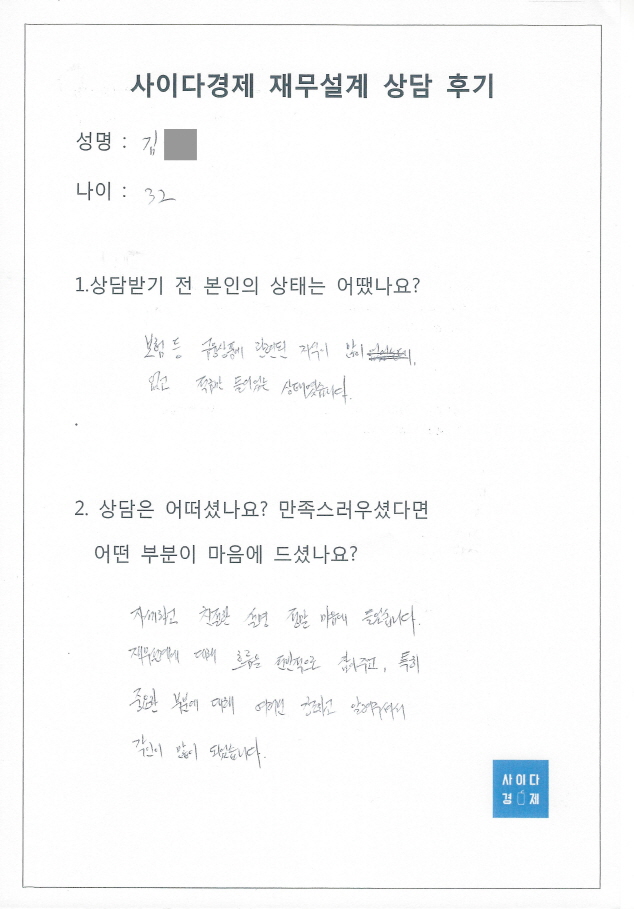 사이다경제 재무설계 상담 후기
성명 : 김
나이 : 32
1.상담받기 전 본인의 상태는 어땠나요?
보험 등 금융상품에 관련된 지식이 많이
없고 적금만 들어있는 상태였습니다.
2. 상담은 어떠셨나요? 만족스러우셨다면
어떤 부분이 마음에 드셨나요?
자세하고 친절한 설명 정말 마음에 들었습니다.
재무설계에 대해 흐름을 전반적으로 잡아주고, 특히
중요한 부분에 대해 여러번 강조하고 알려주셔서
각인이 많이 되었습니다.
사이다
경제